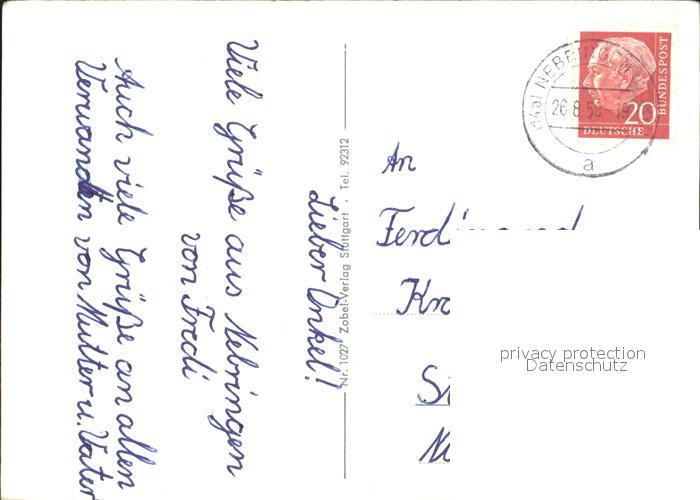 Lieber Onkel!
Viele Grüße aus Nebringen
von Fredi
Auch viele Grüße an allen
Verwandten von Mutter u. Vater
Nr. 1027 Zobel-Verlag Stuttgart . Tel. 92312
An
NEBRINGEN
(14a)
26.8.58.-19
a
20
DEUTSCHE
BUNDESPOST
privacy protection
Datenschutz